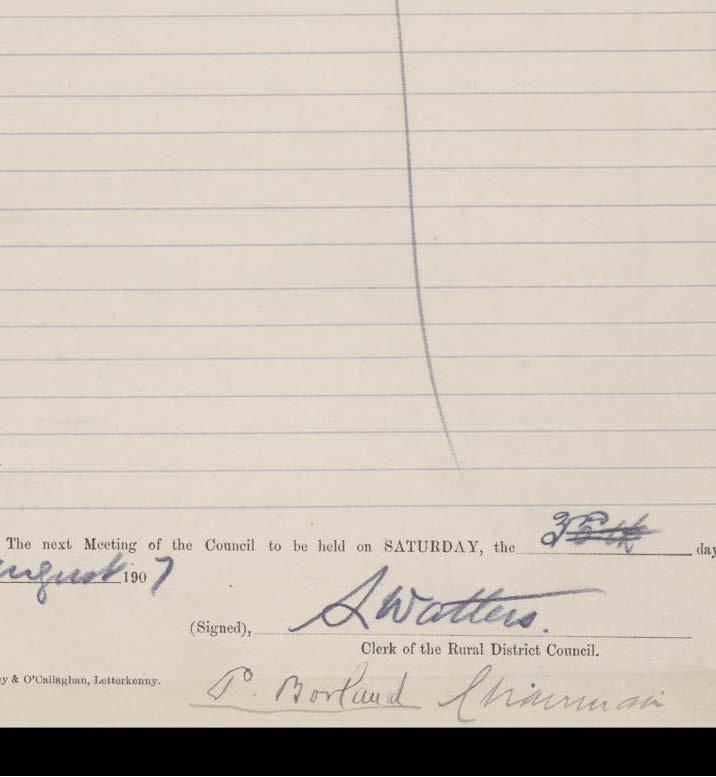 The next Meeting of the Council to be held on SATURDAY, the 3 day
ugust 1907
(Signed), S Watters.
Clerk of the Rural District Council.
y & O'Callaghan, Letterkenny.
P. Borland Chairman